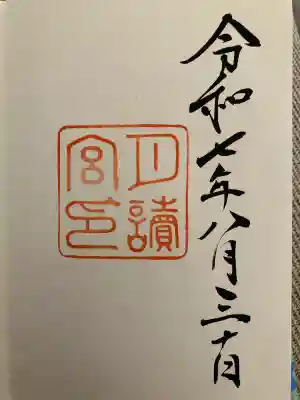 令和七年八月三十日
月讀
宮印